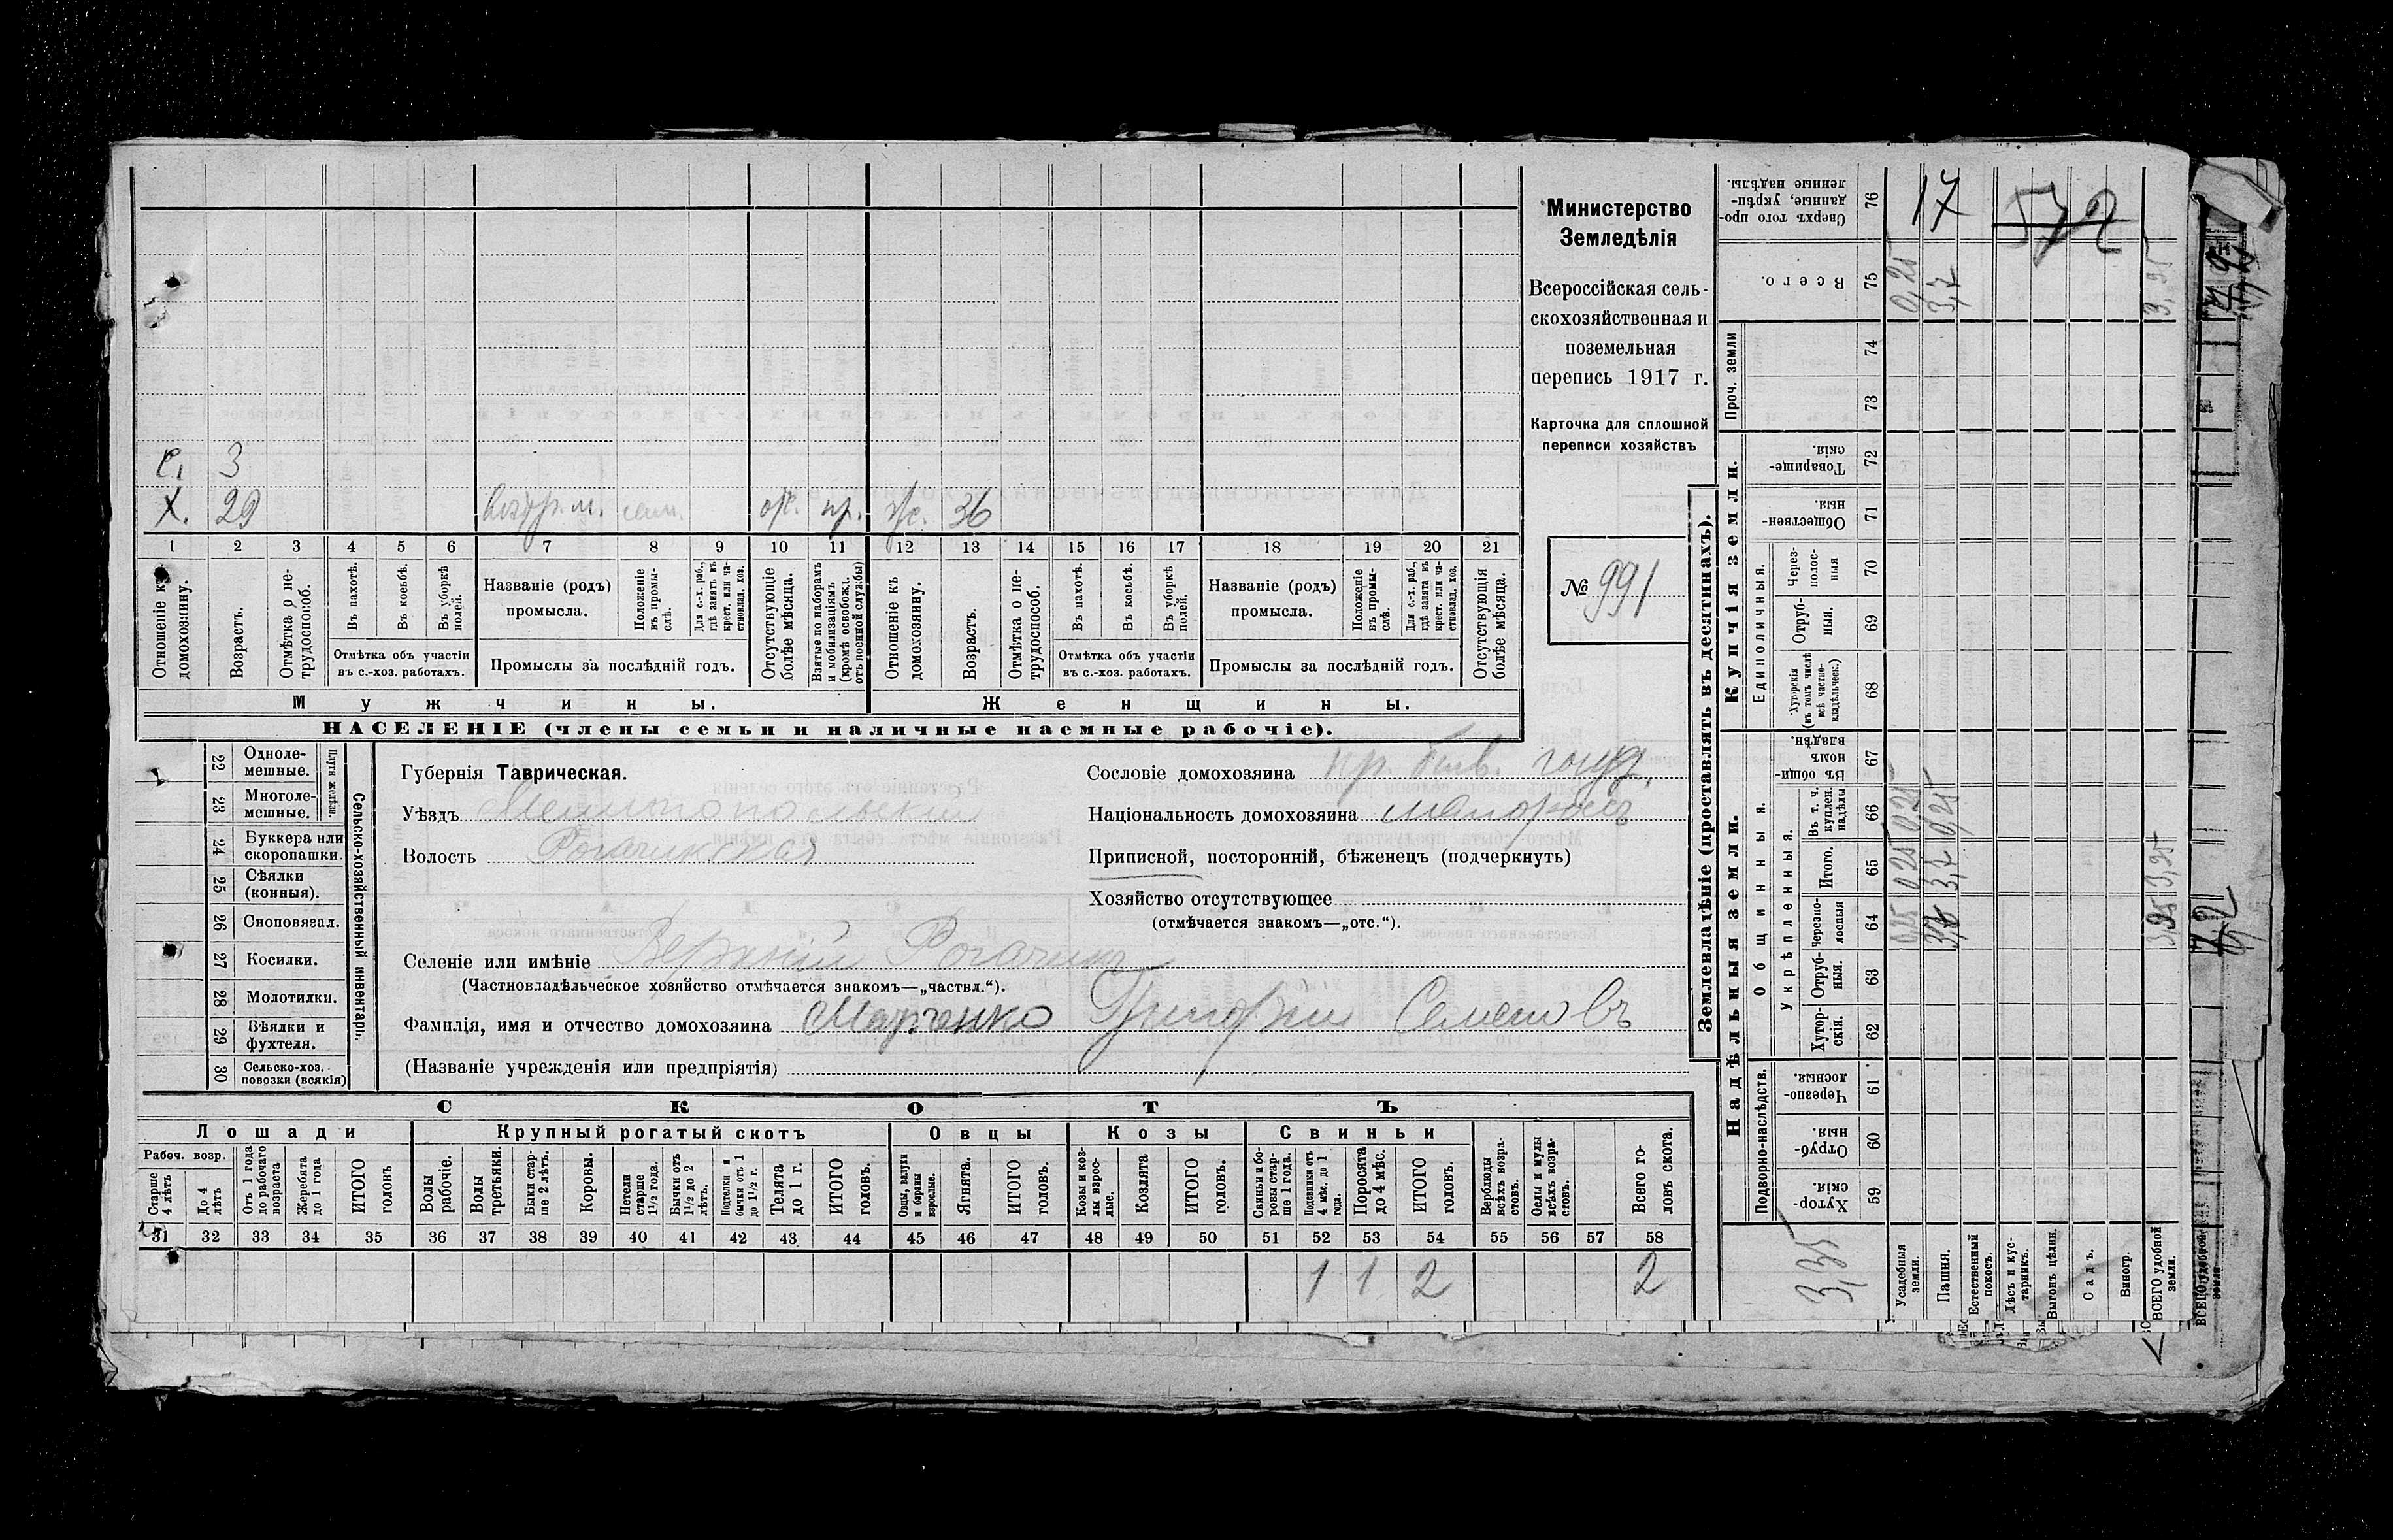 с. 3
х. 29 сам. от. пр. ж. 36
1 2 3 4 5 6 7 8 9 10 11 12 13 14 15 16 17 18 19 20 21
Отношеніе къ домохозяину.
Возрастъ.
Отмѣтка о нетрудоспособ.
Въ пахотѣ.
Въ косьбѣ.
Въ уборкѣ полей.
Отмѣтка объ участіи въ с.-хоз. работахъ.
Названіе (родъ) промысла.
Положеніе въ промыслѣ.
Для с.-х. раб., гдѣ занятъ въ крест. или частновлад. хоз.
Промыслы за послѣдній годъ.
Отсутствующіе болѣе мѣсяца.
Взятые по наборамъ и мобилизаціямъ (кромѣ освобожд. отъ военной службы)
Отношеніе къ домохозяину.
Возрастъ.
Отмѣтка о нетрудоспособ.
Въ пахотѣ.
Въ косьбѣ.
Въ уборкѣ полей.
Отмѣтка объ участіи въ с.-хоз. работахъ.
Названіе (родъ) промысла.
Положеніе въ промыслѣ.
Для с.-х. раб., гдѣ занята въ крест. или частновлад. хоз.
Промыслы за послѣдній годъ.
Отсутствующія болѣе мѣсяца.
Мужчины. Женщины.
НАСЕЛЕНІЕ (члены семьи и наличные наемные рабочіе).
Министерство
Земледѣлія
Всероссійская сель-
скохозяйственная и
поземельная
перепись 1917 г.
Карточка для сплошной
переписи хозяйствъ
№ 991
22 Однолемешные.
23 Многолемешные.
Плуги желѣзн.
24 Буккера или скоропашки.
25 Сѣялки (конныя).
26 Сноповязал.
27 Косилки.
28 Молотилки.
29 Вѣялки и фухтеля.
30 Сельско-хоз. повозки (всякія)
Сельско-хозяйственный инвентарь.
Губернія Таврическая.
Уѣздъ Мелитопольскій
Волость Рогачикская
Сословіе домохозяина
Національность домохозяина малороссъ
Приписной, посторонній, бѣженецъ (подчеркнуть)
Хозяйство отсутствующее
(отмѣчается знакомъ—„отс.“).
Селеніе или имѣніе Верхній Рогачикъ
(Частновладѣльческое хозяйство отмѣчается знакомъ—„частвл.“).
Фамилія, имя и отчество домохозяина Марченко Григорій Семеновъ
(Названіе учрежденія или предпріятія)
СКОТЪ
Лошади Крупный рогатый скотъ Овцы Козы Свиньи
Рабоч. возр.
Старше 4 лѣтъ
До 4 лѣтъ
Отъ 1 года до рабочаго возраста
Жеребята до 1 года
ИТОГО головъ
Волы рабочіе.
Волы третьяки.
Быки старше 2 лѣтъ.
Коровы.
Нетели старше 1½ года.
Бычки отъ 1½ до 2 лѣтъ.
Подтелки и бычки отъ 1 до 1½ г.
Телята до 1 г.
ИТОГО головъ.
Овцы, валухи и бараны взрослые.
Ягнята.
ИТОГО головъ.
Козы и козлы взрослые.
Козлята
ИТОГО головъ.
Свиньи и боровы старше 1 года.
Подсвинки отъ 4 мѣс. до 1 года.
Поросята до 4 мѣс.
ИТОГО головъ.
Верблюды всѣхъ возрастовъ.
Ослы и мулы всѣхъ возрастовъ.
Всего головъ скота.
31 32 33 34 35 36 37 38 39 40 41 42 43 44 45 46 47 48 49 50 51 52 53 54 55 56 57 58
1 1 2 2
Землевладѣніе (проставлять въ десятинахъ).
Купчія земли.
Надѣльныя земли.
Проч. земли
Единоличныя.
Общинныя.
Укрѣпленныя.
Подворно-наслѣдств.
Сверхъ того проданные, укрѣпленные надѣлы. 76 17 572
Всего. 75 0,25 3,7 3,95
74
73
Товарищескія. 72
Общественныя. 71
Черезполосныя 70
Отрубныя. 69
Хуторскія (въ томъ числѣ всѣ частновладѣльческ.) 68
Въ общинномъ владѣн. 67
Въ т. ч. куплен. надѣлы 66 0,25 0,25
Итого. 65 0,25 3,7 3,95
Черезполосныя 64 0,25 3,7 3,95
Отрубныя. 63
Хуторскія. 62
Черезполосныя. 61
Отрубныя. 60
Хуторскія. 59
3,95
Усадебныя земли.
Пашня.
Естественный покосъ.
Лѣсъ и кустарникъ.
Выгонъ цѣлин.
Садъ.
Виногр.
ВСЕГО удобной земли.
ВСЕГО удобной земли